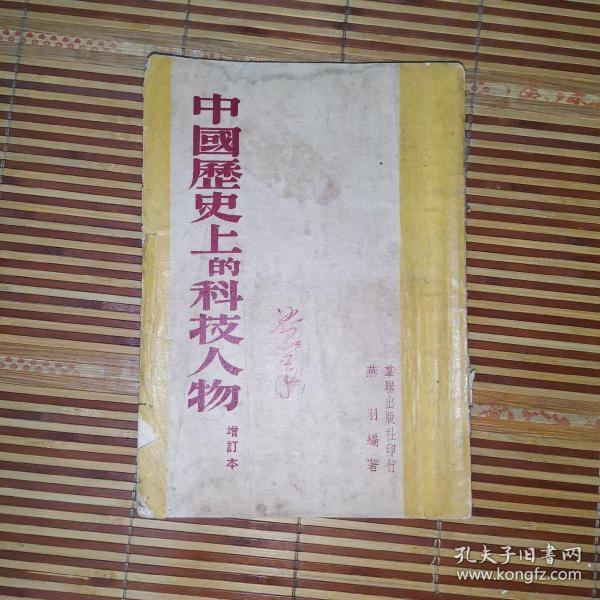 中國歷史上的科技人物
增訂本
羣聯出版社印行
燕羽編著
孔夫子旧书网
www.kongfz.com